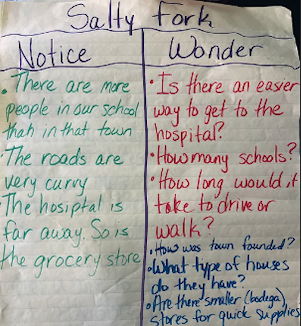 Salty Fork
Notice
. There are more
people in our school
than in that town
The roads are
very curvy
The hosiptal is
far away. So is
the grocery store
Wonder
• Is there an easier
way to get to the
hospital?
• How many schools?
• How long would it
take to drive or
walk?
• How was town founded?
• What type of houses
do they have?
• Are there smaller (bodega)
stores for quick supplies